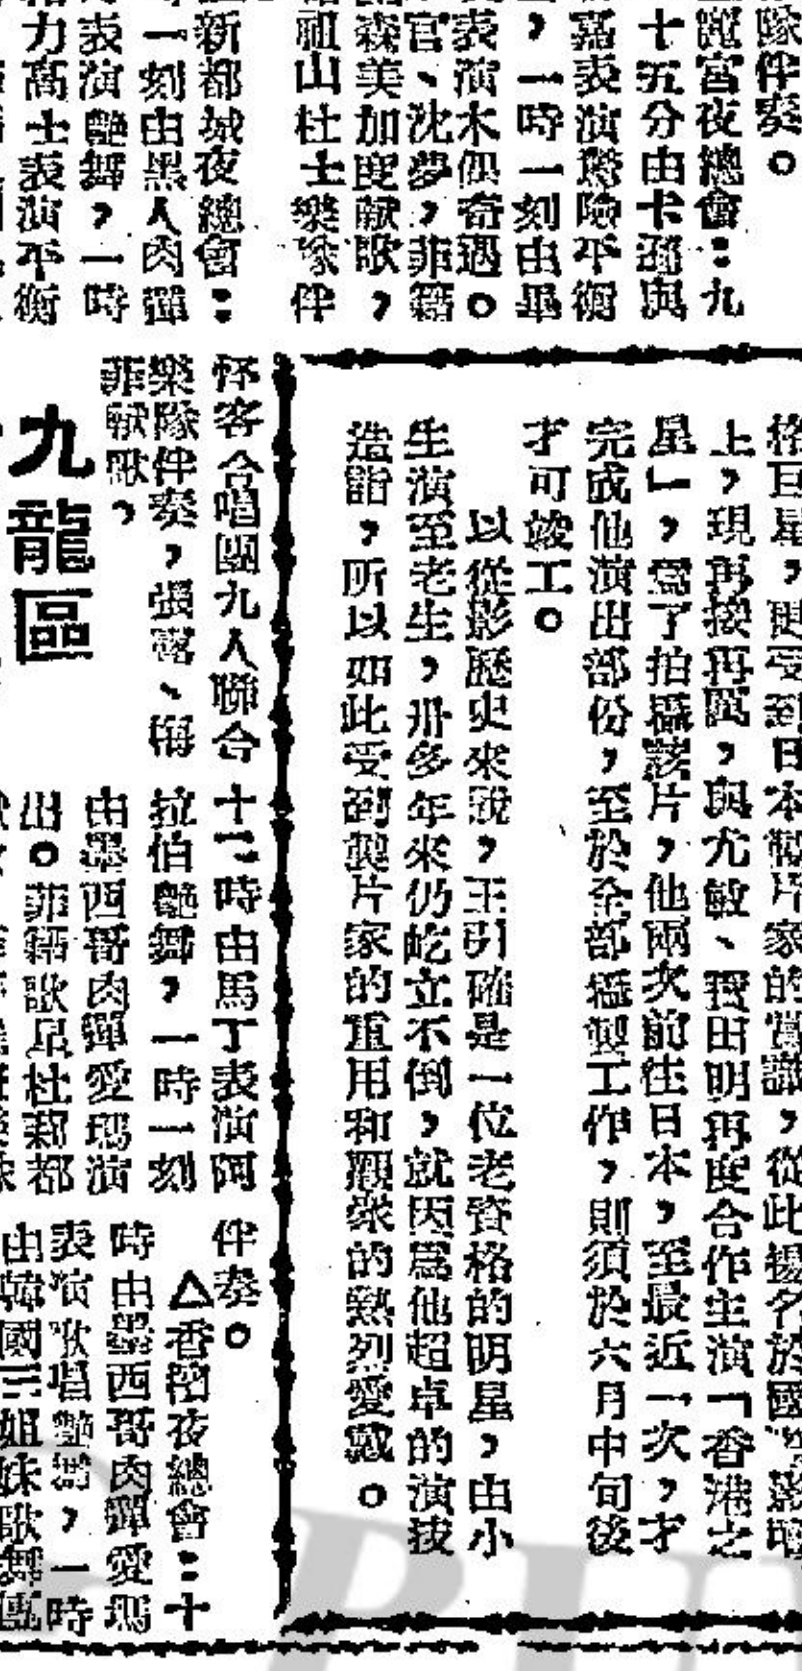 隊伴奏。
麗宮夜總會：九
十五分由卡通與
嘉表演驚險平衡
，一時一刻由畢
表演木偶奇遇。
官、沈夢，菲籍
森美加度献歌，
祖山杜士樂隊伴
新都城夜總會：
一刻由黑人肉彈
表演艷舞，一時
力高士表演平衡
格巨星，更受到日本製片家的賞識，從此揚名於國際影壇
上，現再接再厲，與尤敏、寶田明再度合作主演「香港之
星」，爲了拍攝該片，他兩次前往日本，至最近一次，才
完成他演出部份，至於全部攝製工作，則須於六月中旬後
才可竣工。
以從影歷史來說，王引確是一位老資格的明星，由小
生演至老生，卅多年來仍屹立不倒，就因爲他超卓的演技
造詣，所以如此受到製片家的重用和觀衆的熱烈愛戴。
怀客合唱團九人聯合
樂隊伴奏，張露、梅
菲献歌，
九龍區
十二時由馬丁表演阿
拉伯艷舞，一時一刻
由墨西哥肉彈愛瑪演
出。菲籍歌星杜莉都
伴奏。
△香檳夜總會：十
時由墨西哥肉彈愛瑪
表演歌唱艷舞，一時
由韓國三姐妹歌舞團